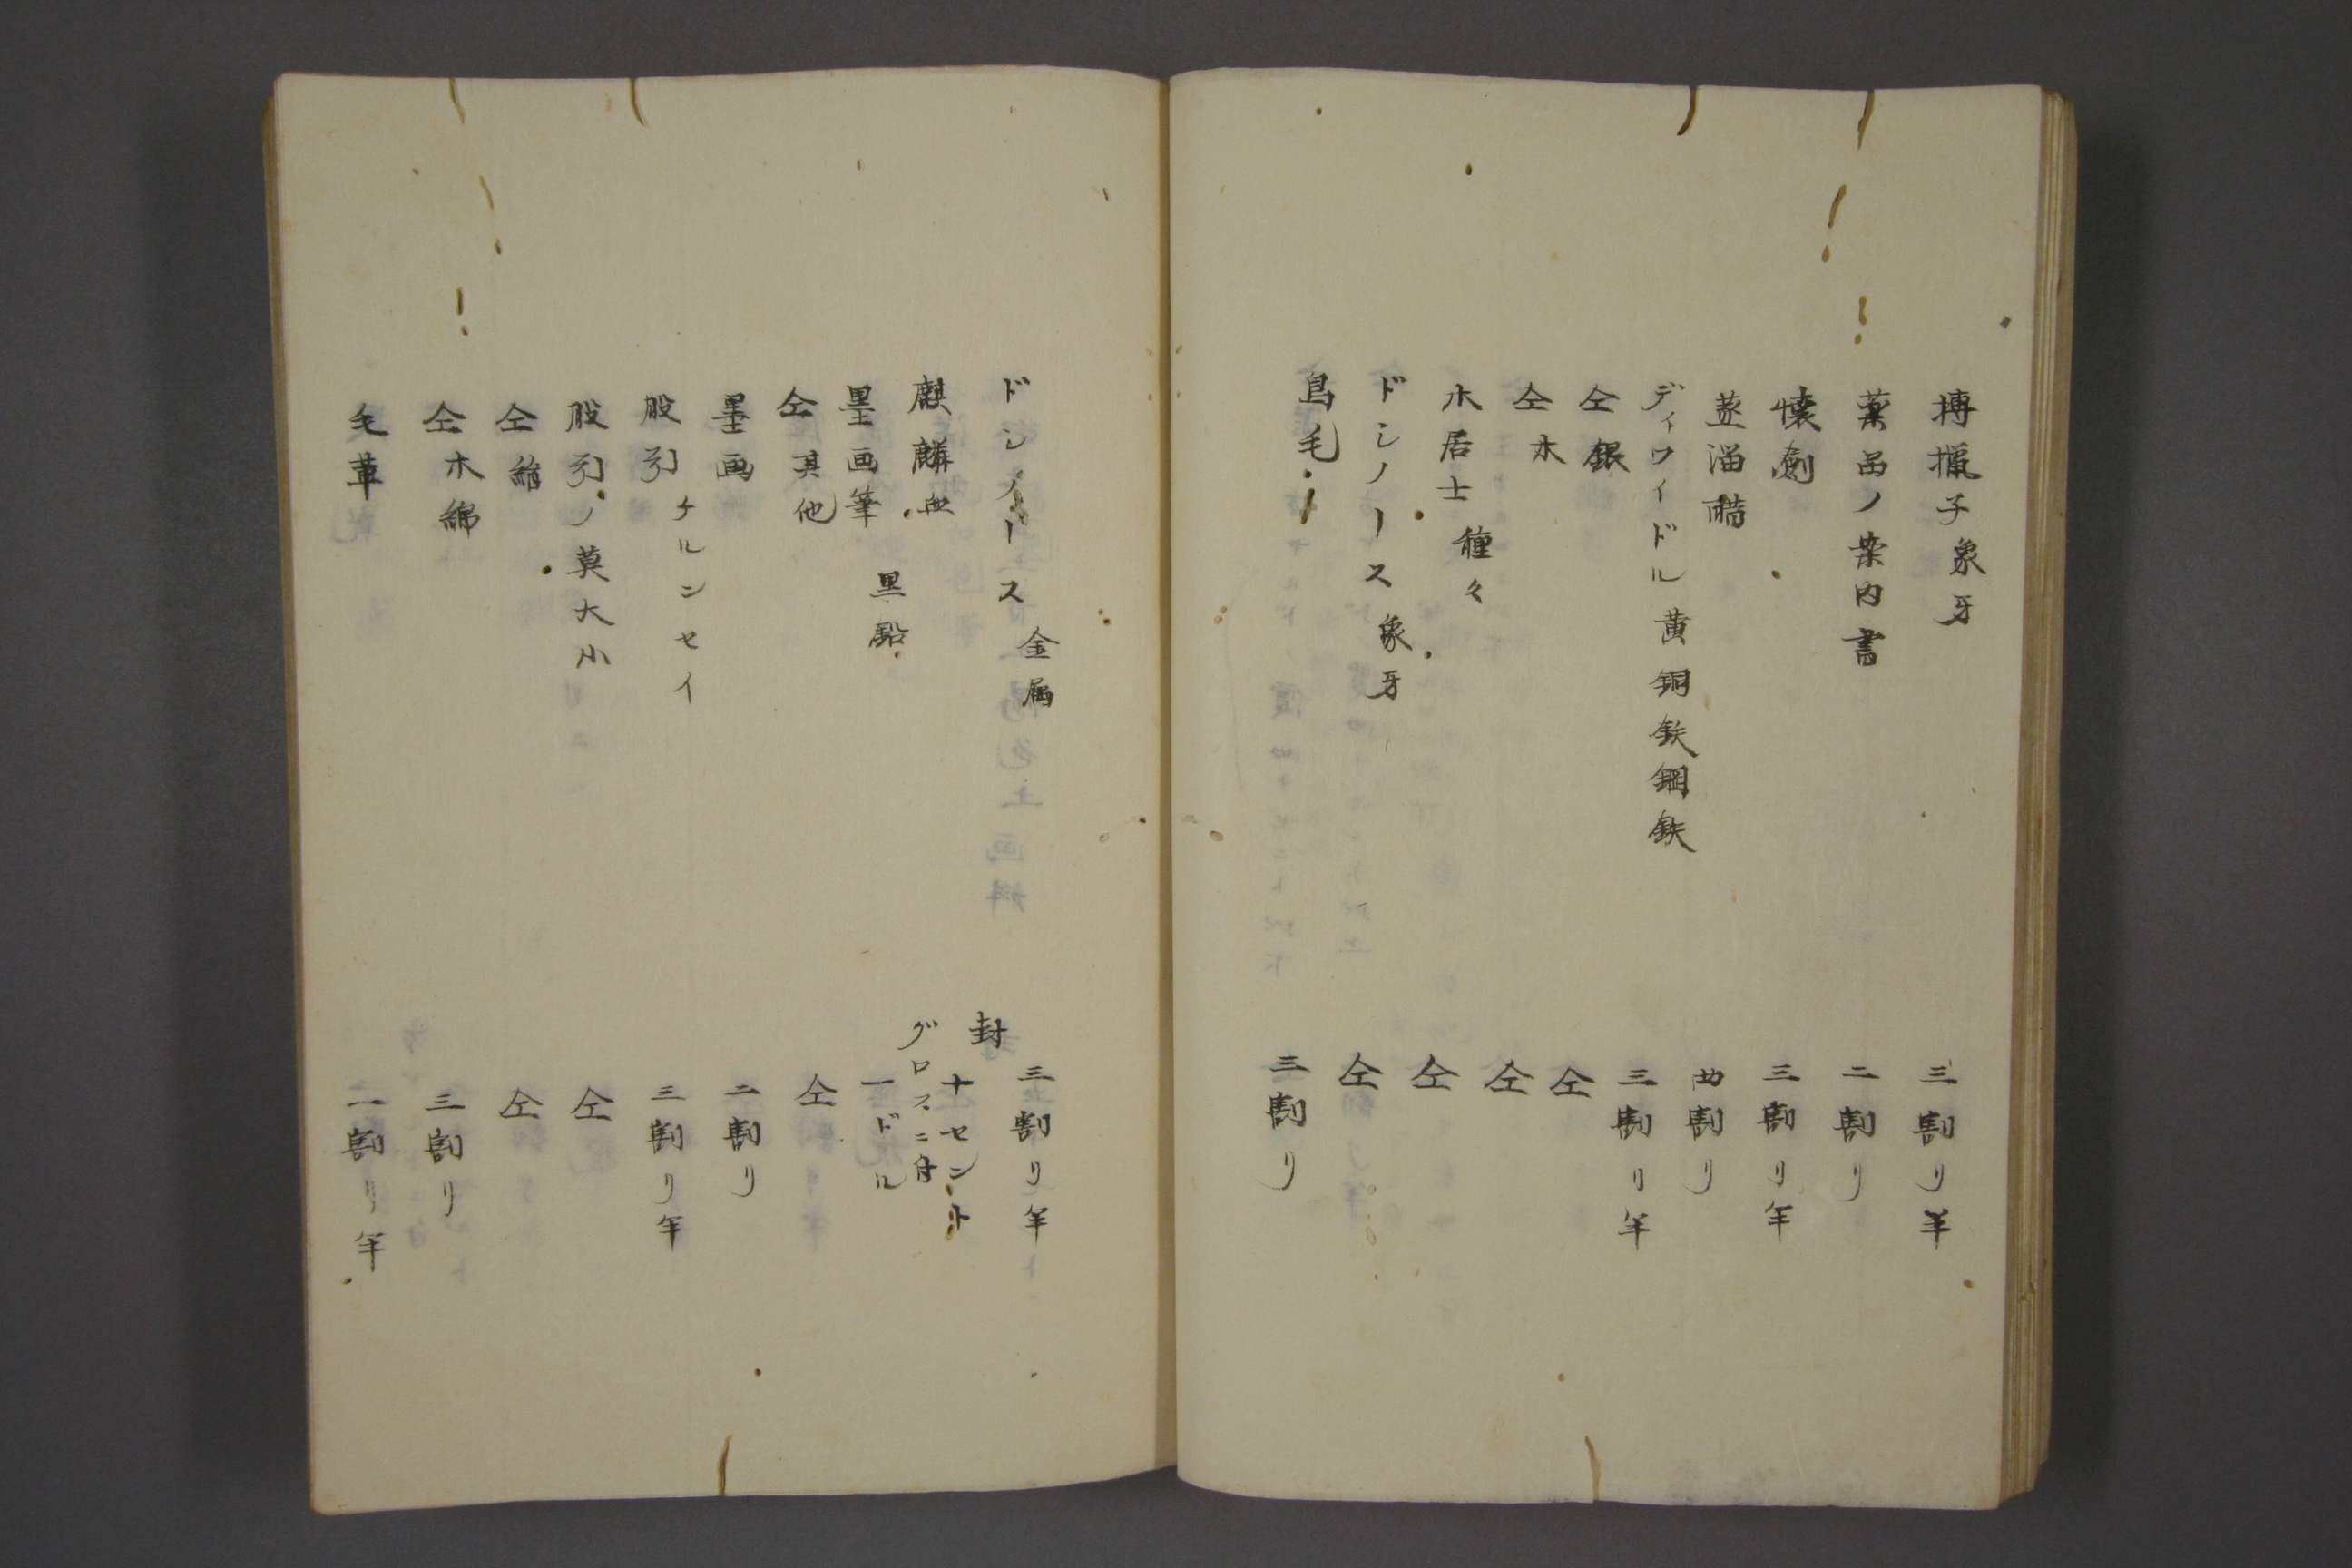 搏擸子象牙　三割リ半
薬品ノ案内書　二割リ
懐剣　三割リ半
蒸溜醋　四割リ
ディワイドル黄銅鉄鋼鉄　三割リ半
仝銀　仝
仝木　仝
木居士　種々　仝
ドシノース象牙　仝
鳥毛　三割リ
ドシノース　金属　三割リ半
麒麟血　封　十セント
墨画筆　黒鉛　グロスニ付　一ドル
仝其他　仝
墨画　二割リ
股引　ケルンセイ　三割リ半
股引ノ莫大小　仝
仝絹　仝
仝木綿　三割リ
毛革　二割リ半